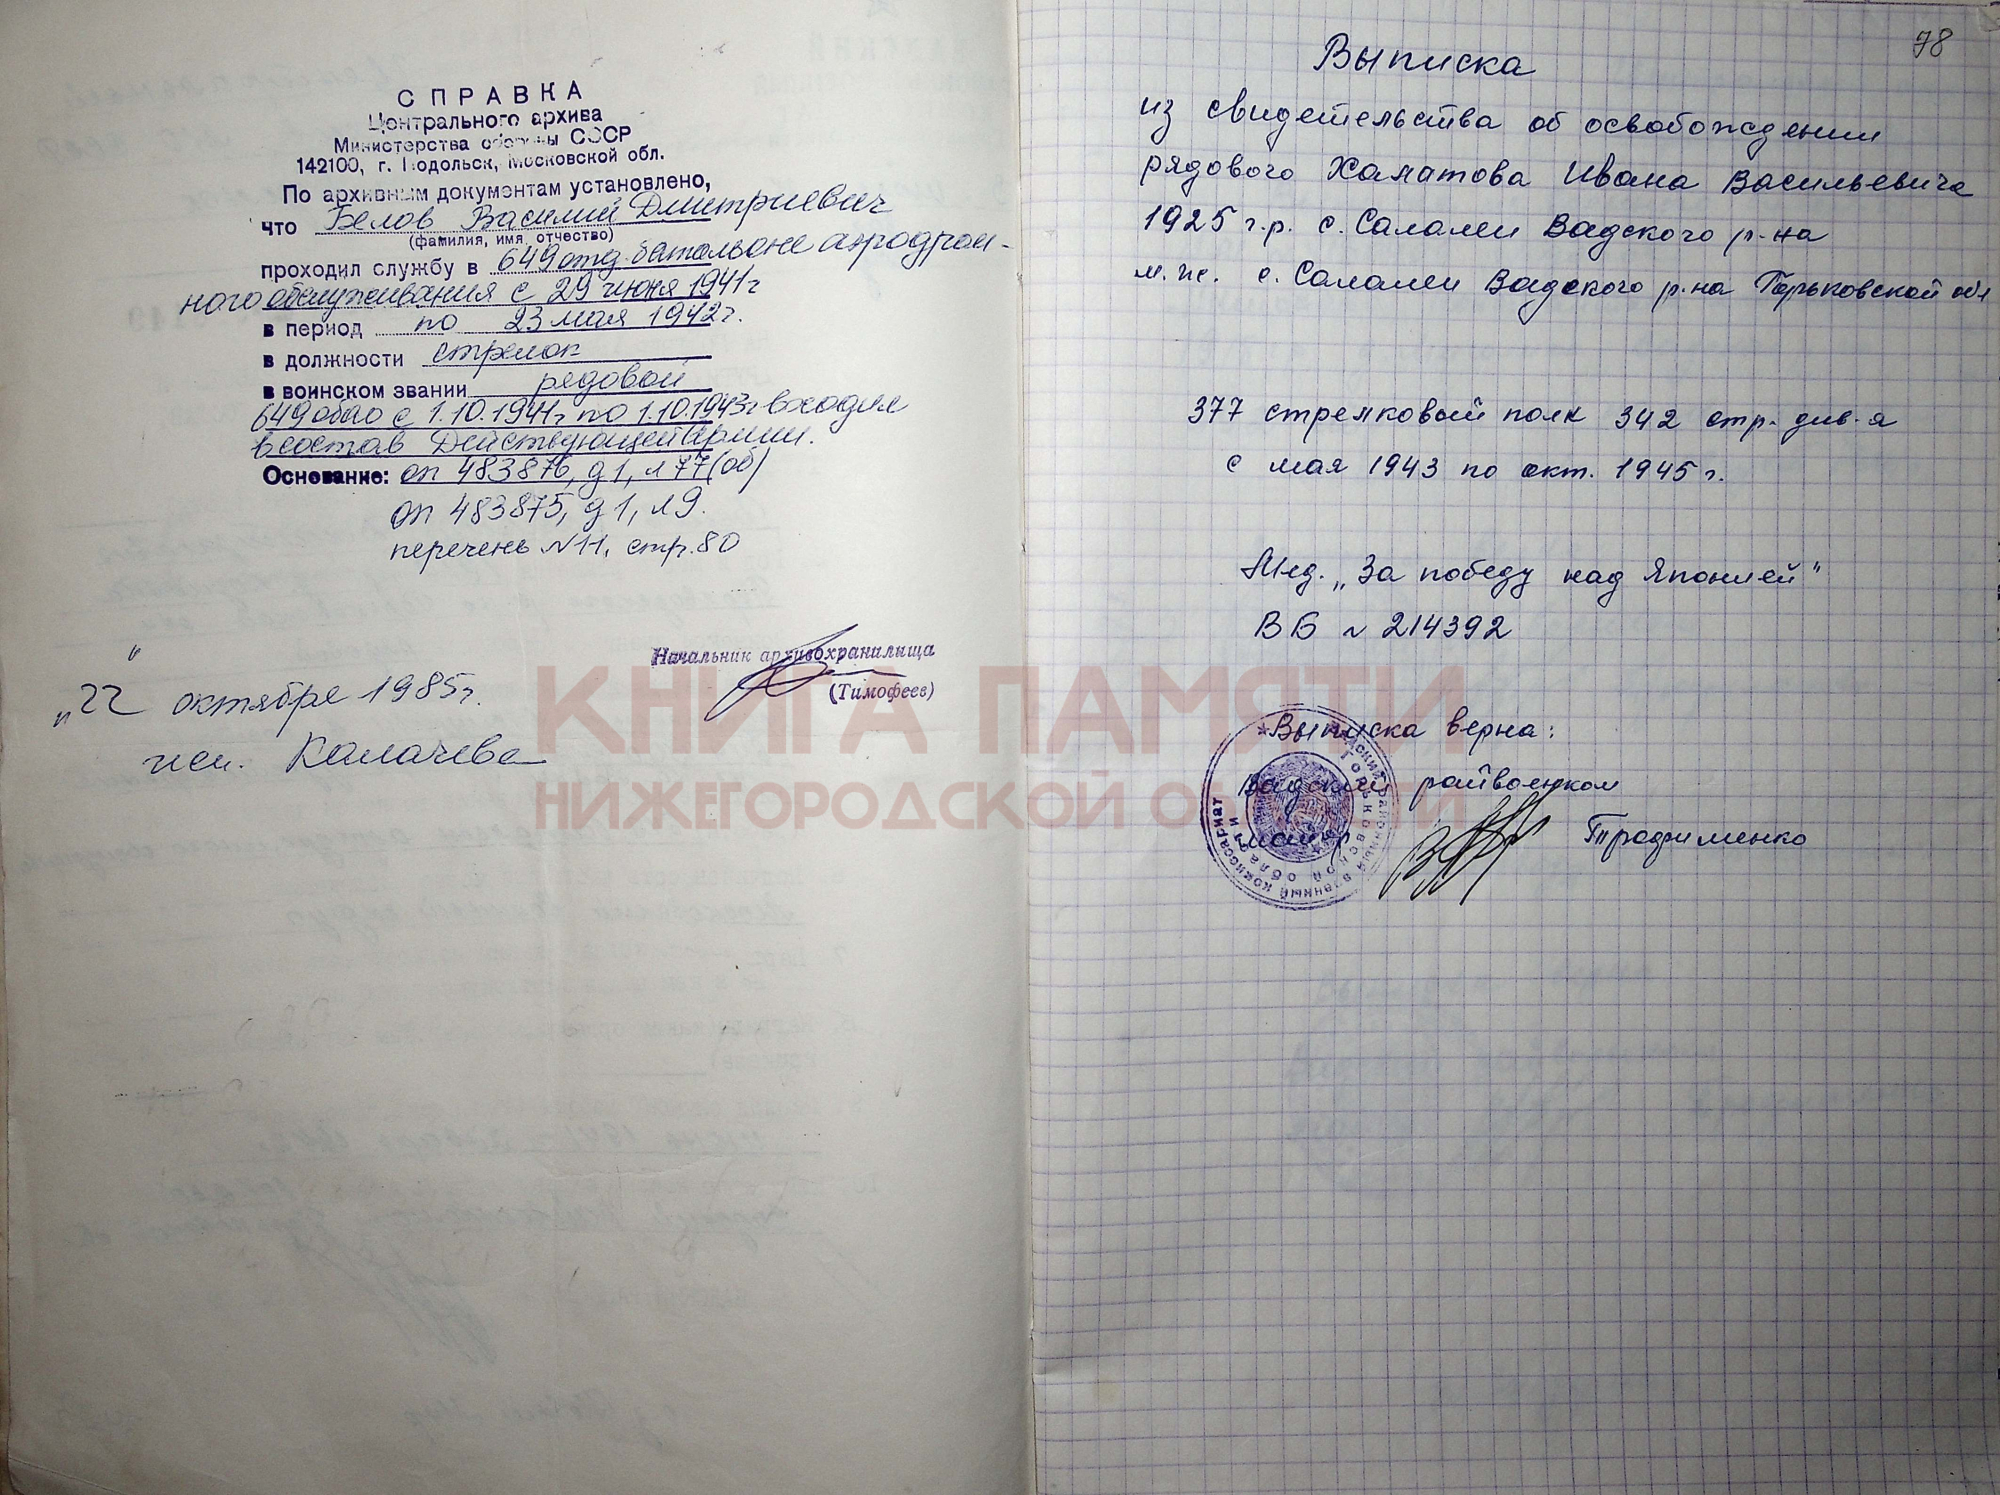 СПРАВКА
Центрального архива
Министерства обороны СССР
142100, г. Подольск, Московской обл.
По архивным документам установлено,
что Белов Василий Дмитриевич
(фамилия, имя, отчество)
проходил службу в 649 отд. батальоне аэродром-
ного обслуживания с 29 июня 1941 г
в период по 23 мая 1942 г.
в должности стрелок
в воинском звании рядовой
649 обао с 1.10.1941г по 1.10.1943г входил
в состав Действующей Армии.
Основание: оп 483876, д 1, л 77 (об)
оп 483875, д 1, л 9.
перечень N 11, стр. 80
Начальник архивохранилища
(Тимофеев)
"22 " октября 1985 г.
исп. Калачева
78
Выписка
из свидетельства об освобождении
рядового Халатова Ивана Васильевича
1925 г.р. с. Салалеи Вадского р-на
м.ж. с. Салалеи Вадского р-на Горьковской обл
377 стрелковый полк 342 стр. див-я
с мая 1943 по окт. 1945 г.
Мед. „За победу над Японией"
ВБ № 214392
Выписка верна:
Вадский райвоенком
Трофименко
Вадский районный военный комиссариат
Горьковской области
КНИГА ПАМЯТИ
НИЖЕГОРОДСКОЙ ОБЛАСТИ